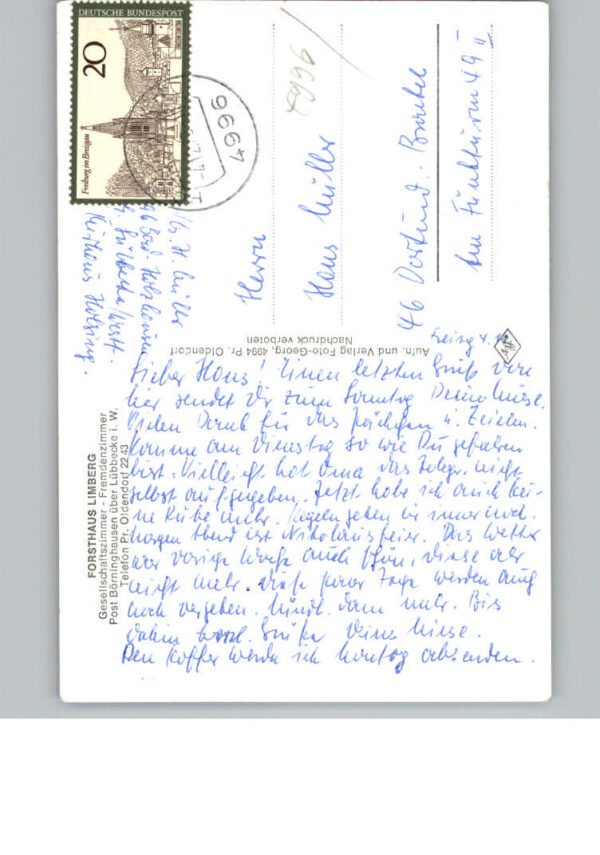 DEUTSCHE BUNDESPOST
20
Freiburg im Breisgau
4996
4996
H. Müller
Bad Holzhausen
Lübbecke/Westf.
Kurhaus Holsing.
Herrn
Hans Müller
46 Dortmund-Brackel
Am Funkturm 49 II
Aufn. und Verlag Foto-Georg, 4994 Pr. Oldendorf
Nachdruck verboten
FORSTHAUS LIMBERG
Gesellschaftszimmer - Fremdenzimmer
Post Börninghausen über Lübbecke i. W.
Telefon Pr. Oldendorf 2243
Freitag 4.
Lieber Hans! Einen letzten Gruß von
hier sendet Dir zum Sonntag Deine Miese.
Vielen Dank für das Päckchen u. Zeilen.
Komme am Dienstag so wie Du gefahren
bist. Vielleicht hat Oma das Telegr. nicht
selbst aufgegeben. Jetzt habe ich auch kei-
ne Ruhe mehr. gehen wir immer noch.
Morgen Abend ist Nikolausfeier. Das Wetter
war vorige Woche auch schön, diese aber
nicht mehr. paar Tage werden auch
noch vergehen. Mündl. dann mehr. Bis
dahin herzl. Grüße Deine Miese.
Den Koffer werde ich Montag absenden.